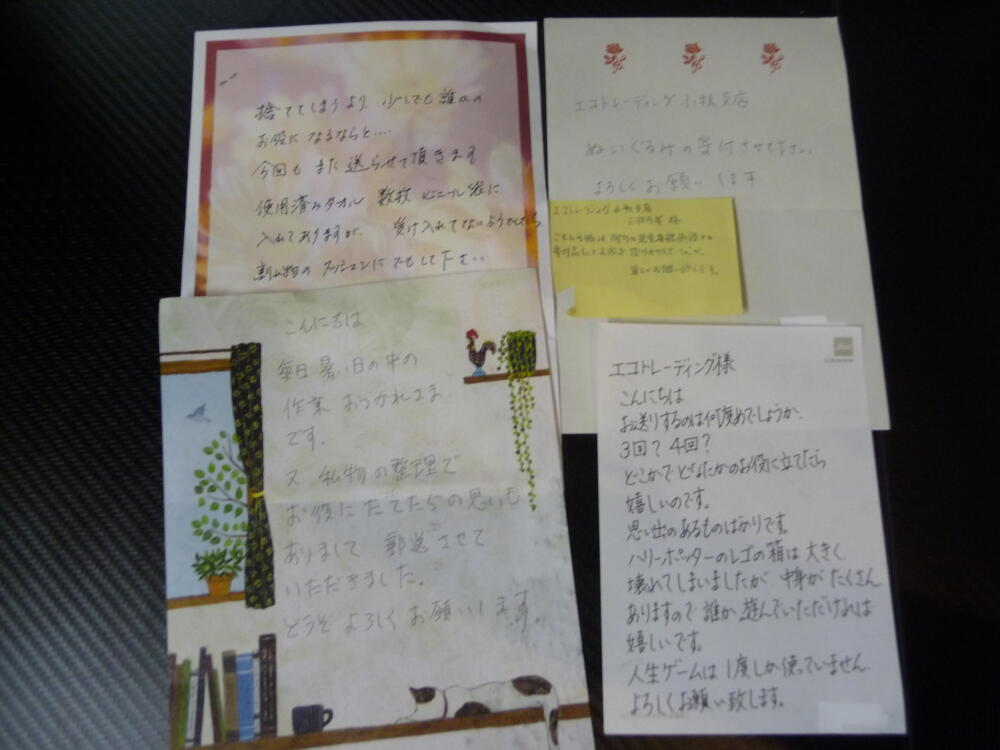 捨ててしまうより、少しでも誰かの
お役になるならと‥‥
今回もまた送らせて頂きます
使用済みタオル 数枚 ビニール袋に
入れてありますが、受け入れてないようでしたら
割れ物のクッションにでもして下さい
エコトレーディング小牧支店
ぬいぐるみの寄付させて下さい。
よろしくお願いします
エコトレーディング小牧支店
こちらの箱は
こんにちは
毎日暑い日の中の
作業おつかれさま
です。
又 私物の整理で
お役にたてたらの思いも
ありまして 郵送させて
いただきました。
どうぞよろしくお願いします。
エコトレーディング様
こんにちは
お送りするのは何度めでしょうか、
3回? 4回?
どこかでどなたかのお役に立てたら
嬉しいのです。
思い出のあるものばかりです。
ハリーポッターのレゴの箱は大きく
壊れてしまいましたが 中身がたくさん
ありますので 誰か遊んでいただければ
嬉しいです。
人生ゲームは1度しか使っていません
よろしくお願い致します。